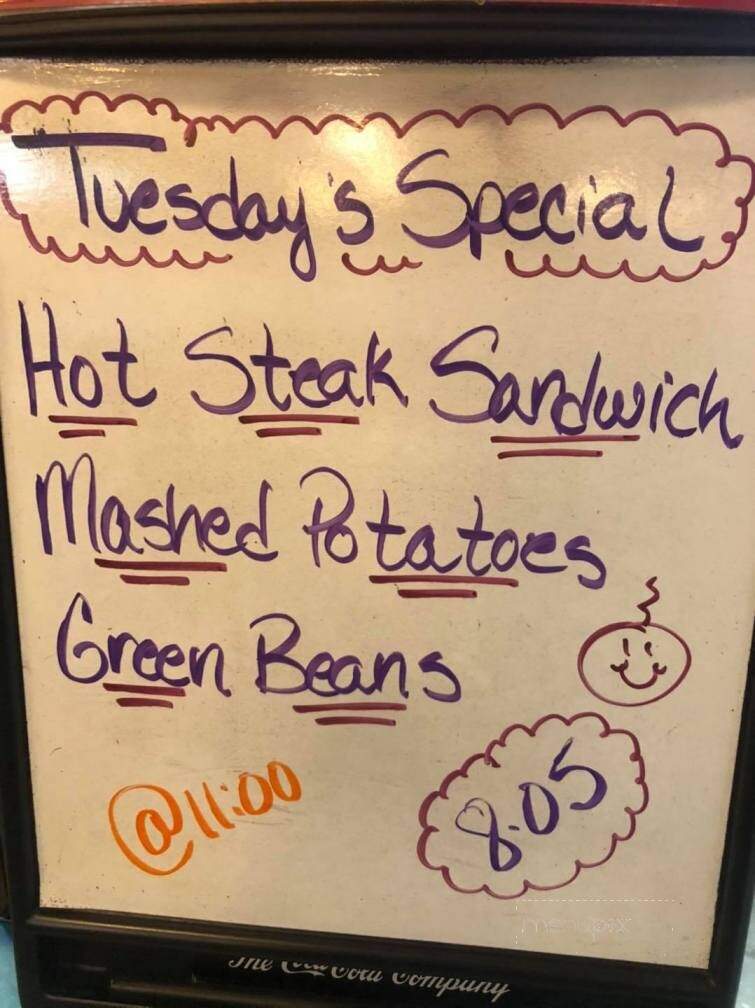 Tuesday's Special
Hot Steak Sandwich
Mashed Potatoes
Green Beans
@11:00
8.05
menupix
The Coca Cola Company